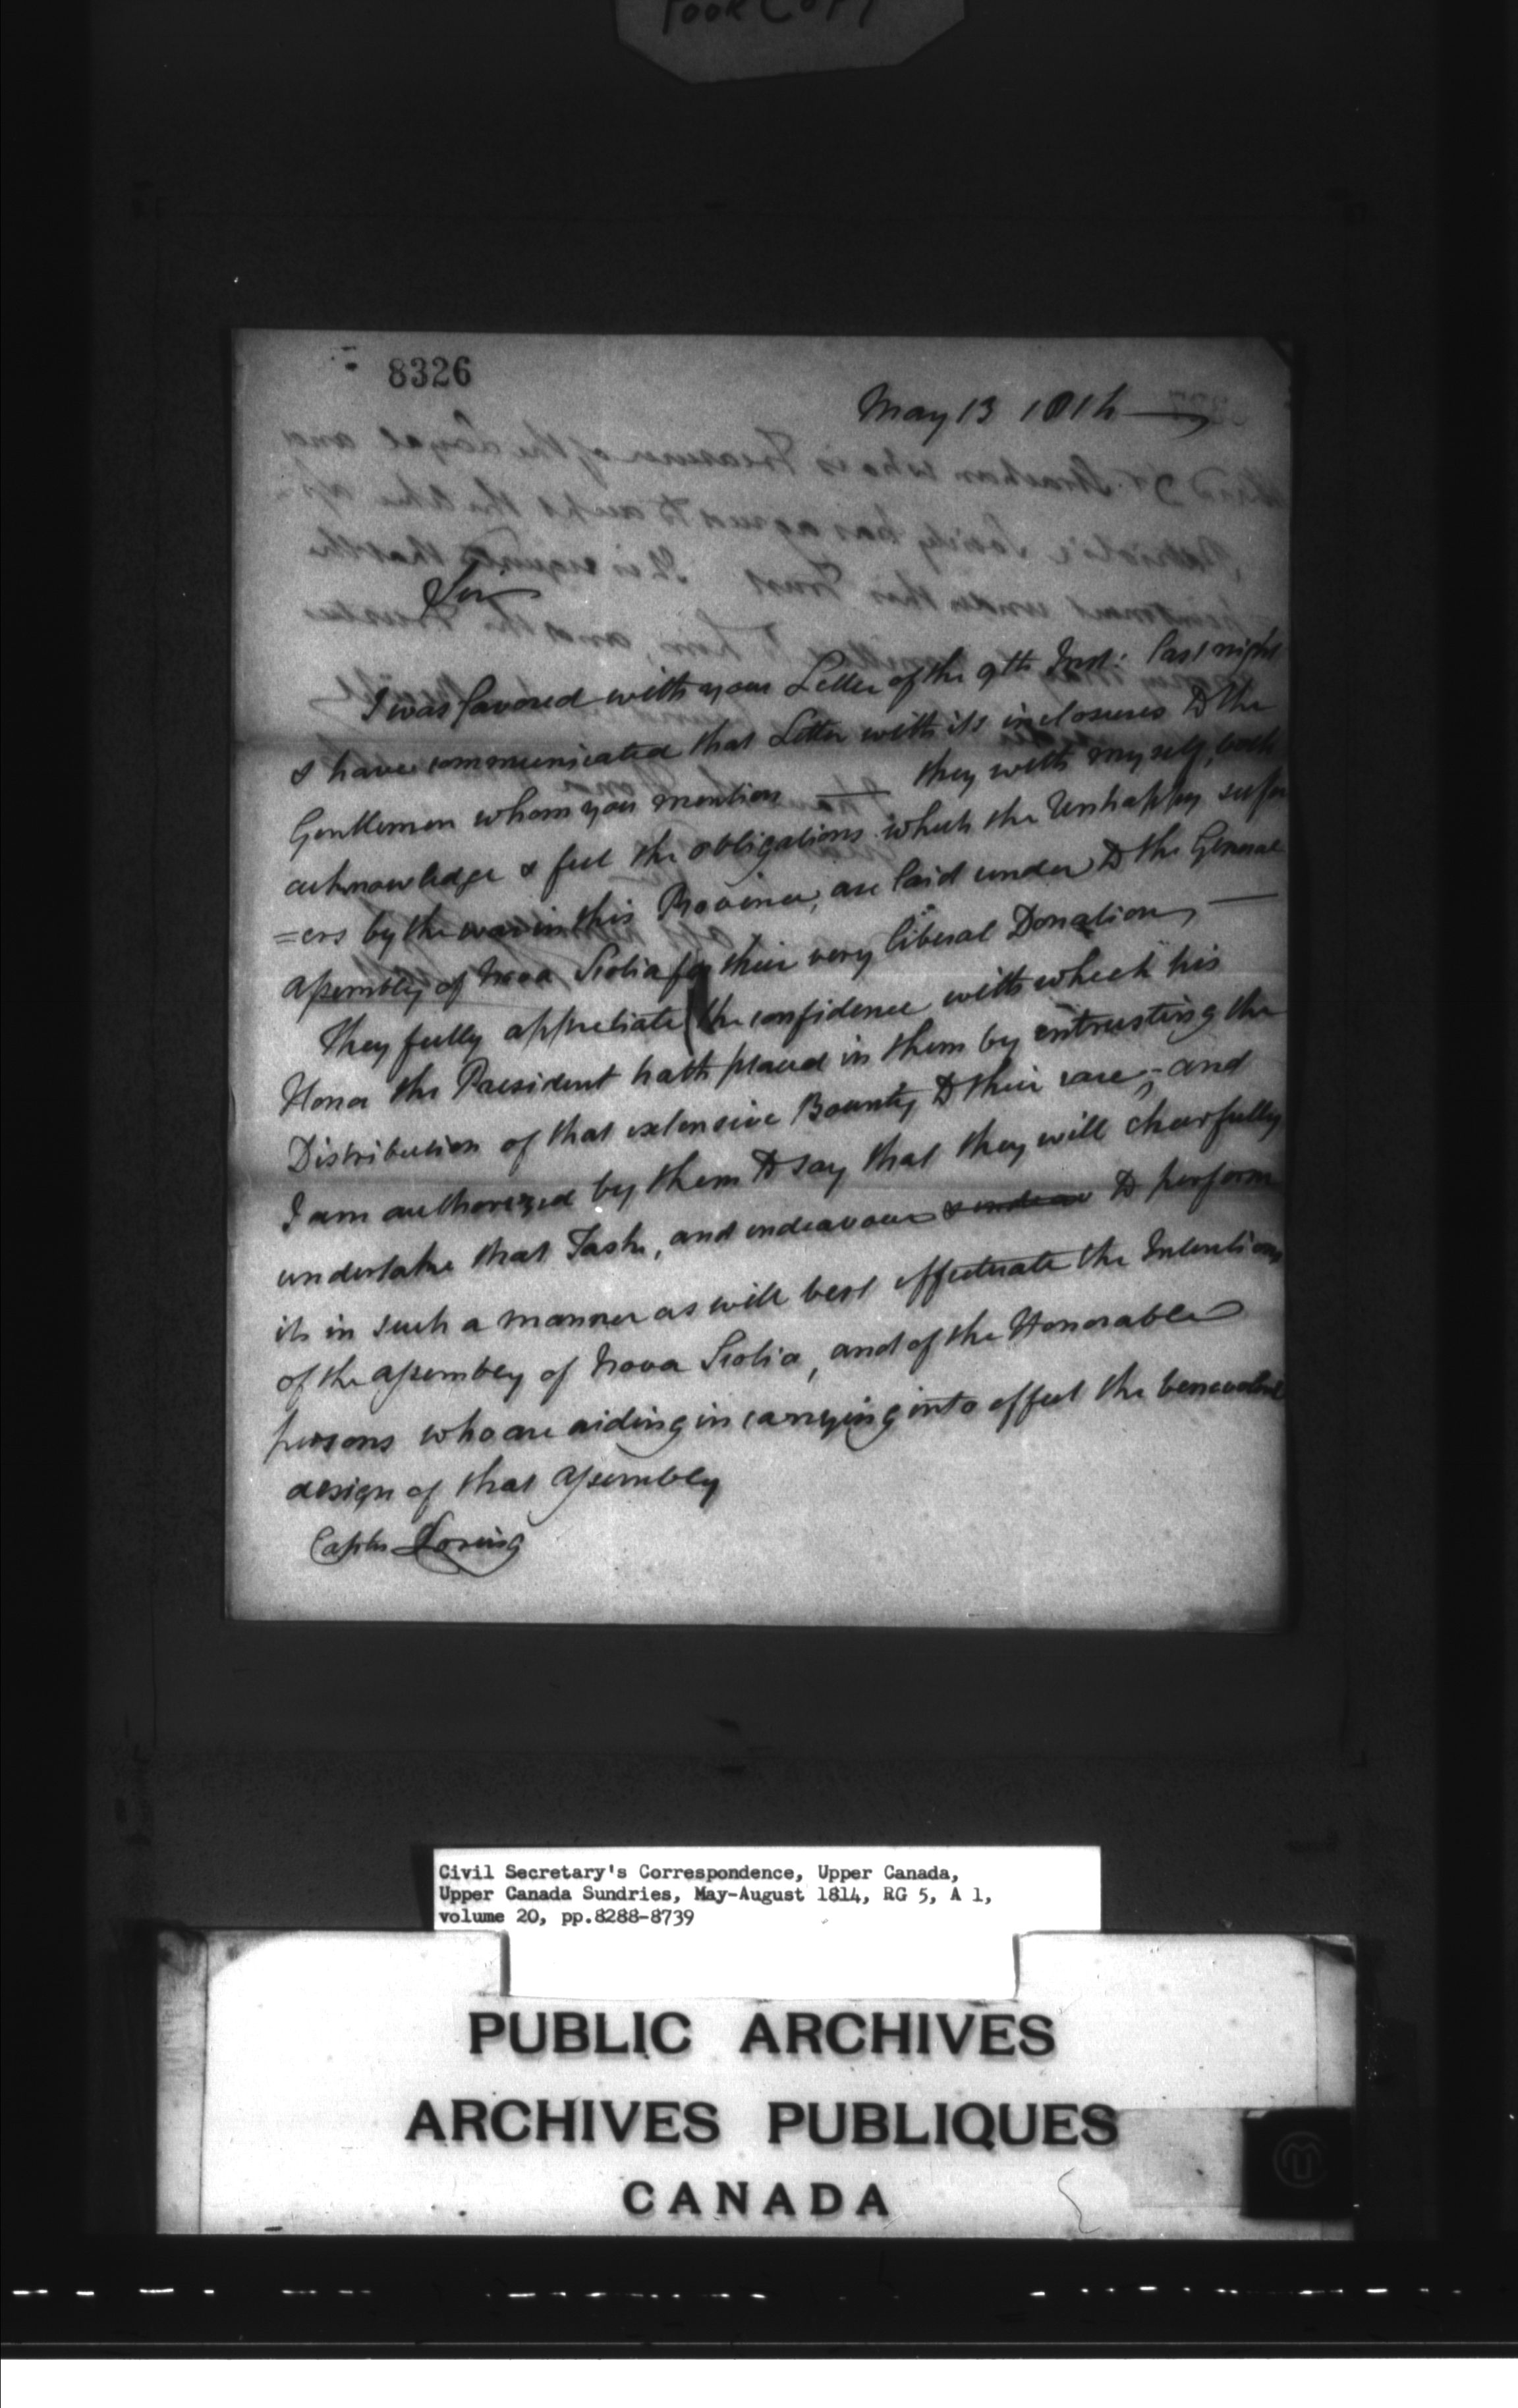 POOR COPY
8326
May 13 1814
Sir
I was favored with your Letter of the 9th Inst: last night
& have communicated that Letter with its inclosures to the
Gentlemen whom you mention — they with myself, both
acknowledge & feel the obligations which the Unhappy suffer
=ers by the war in this Province, are laid under to the General
Assembly of Nova Scotia for their very liberal Donation, —
They fully appretiate the confidence with which his
Honor the President hath placed in them by entrusting the
Distribution of that extensive Bounty to their care; and
I am authorized by them to say that they will chearfully
undertake that Task, and endeavour to perform
it in such a manner as will best effectuate the Intentions
of the Assembly of Nova Scotia, and of the Honorable
persons who are aiding in carrying into effect the benevolent
design of that Assembly
Captn Loring
Civil Secretary's Correspondence, Upper Canada,
Upper Canada Sundries, May-August 1814, RG 5, A 1,
volume 20, pp.8288-8739
PUBLIC ARCHIVES
ARCHIVES PUBLIQUES
CANADA